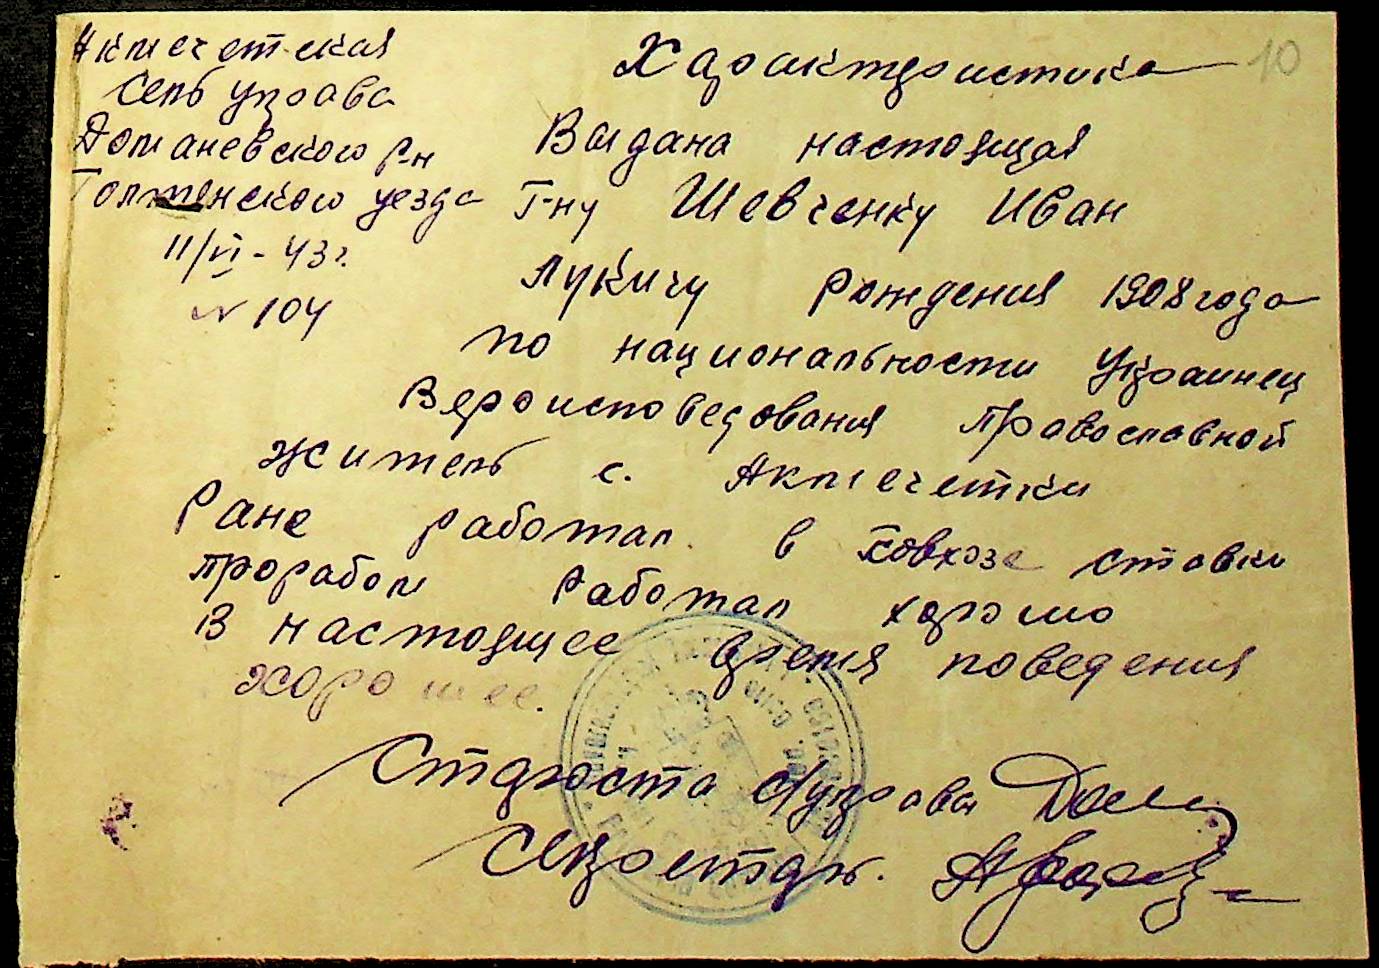 Акмечетская
Сельуправа
Доманевского р-н
Голтянского уезда
11/VI - 43 г.
№ 104
10
Характеристика
Выдана настоящая
Г-ну Шевченку Иван
Лукичу рождения 1908 года
по национальности Украинец
Вероисповедования православной
житель с. Акмечетки
Ране работал в совхозе ставки
прорабом работал хорошо
В настоящее время поведения
хорошее.
Староста с/управы
Секретарь.